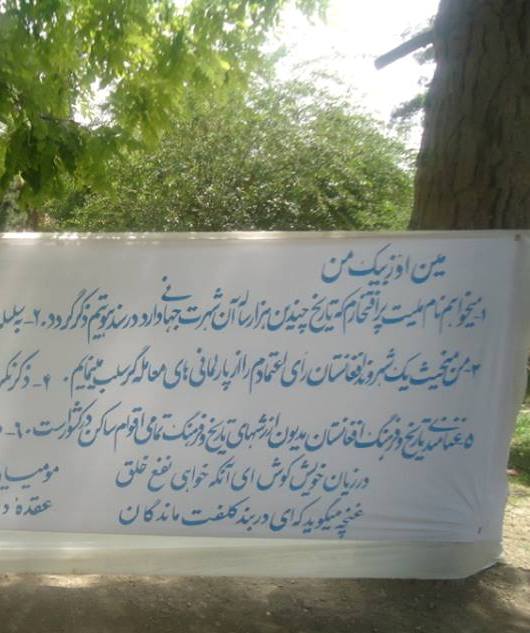 مین اوزبیک من
۱- میخواهم نام ملیت پرافتخارم که تاریخ چندین هزار ساله آن شهرت جهانی دارد در سند هویتم ذکر گردد. ۲-
۳- من منحیث یک شهروند افغانستان رأی اعتمادم را از پارلمانی های معامله گر سلب مینمایم. ۴-
۵- غنامندی تاریخ و فرهنگ افغانستان مدیون ارزشهای تاریخ و فرهنگ تمامی اقوام ساکن در کشور است. ۶-
در زیان خویش کوش ای آنکه خواهی نفع خلق مومیا
غنچه میگوید که ای در بند کلفت ماندگان عقدهٔ د